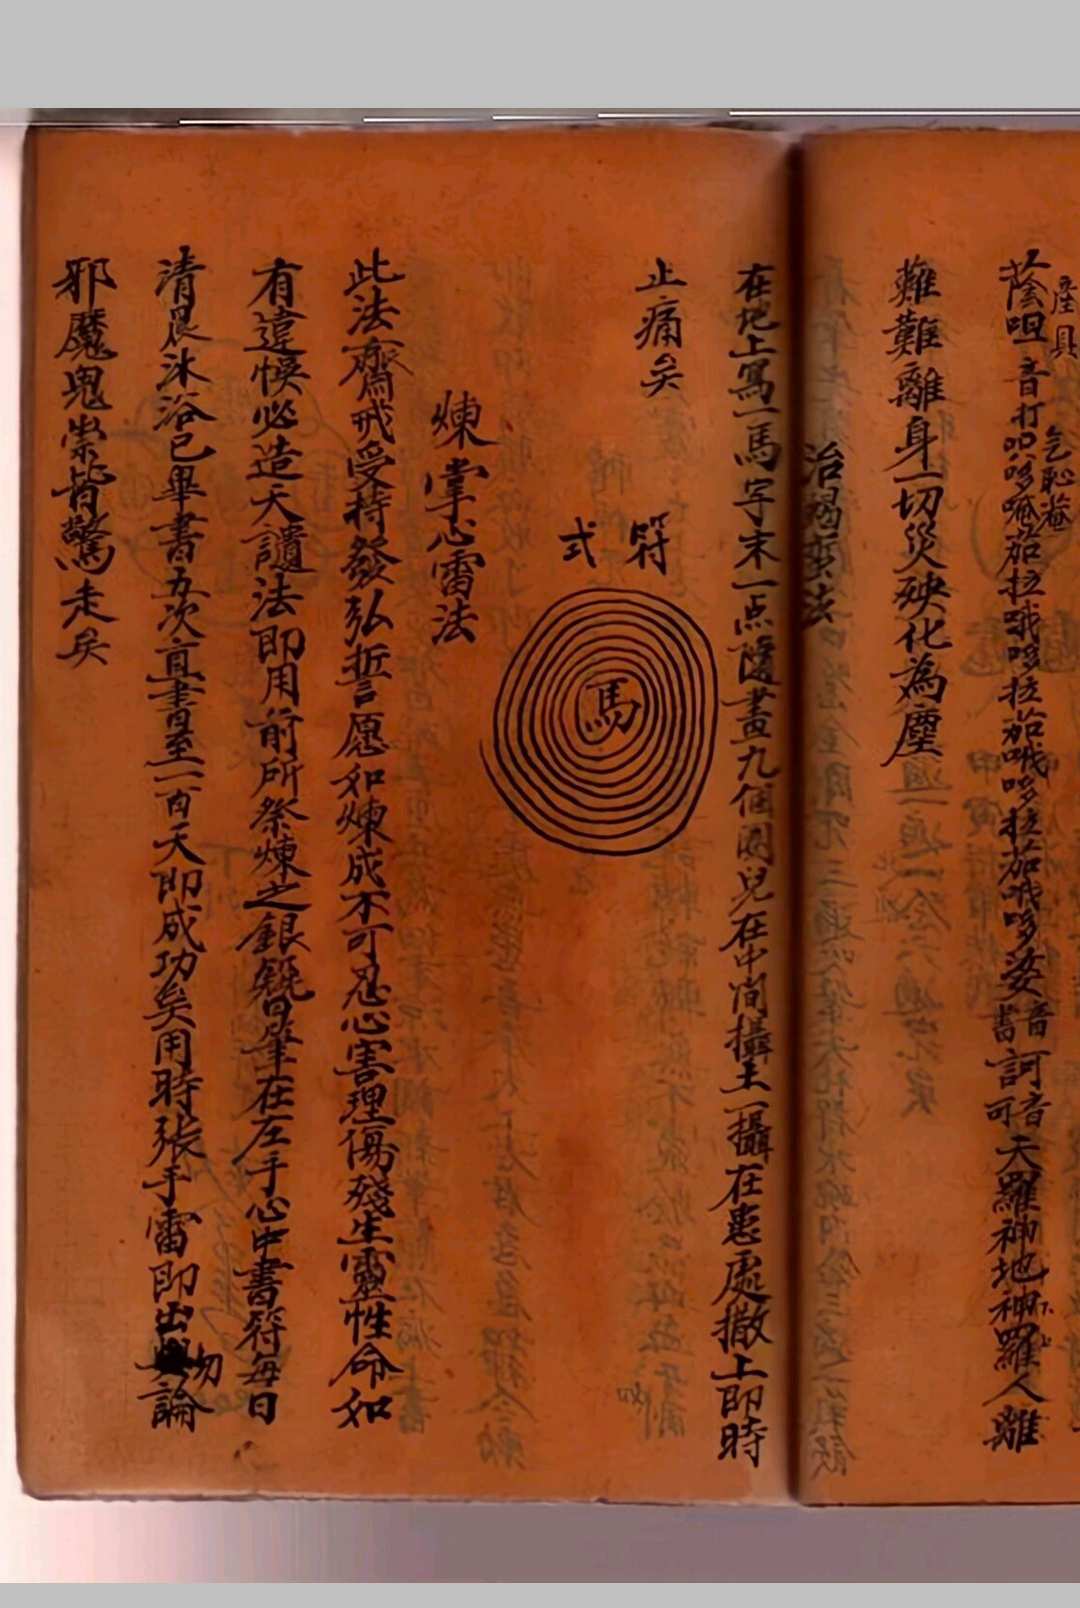 產具
乞恥菴
蔭咀音打叺哆唵茄拉哦哆拉茄哦哆拉茄哦哆娑音書訶音可天羅神地神羅人離
難難離身一切災殃化為塵
治蝎蜇法
在地上寫一馬字末一点隨畫九個圈兒在中间攝土一攝在患處撒上即時
止痛矣
符
式
馬
煉掌心雷法
此法齋戒受持發弘誓愿如煉成不可忍心害理傷殘生靈性命如
有違悞必造天譴法即用前所祭煉之銀硃筆在左手心中書符每日
清晨沐浴已畢書五次直書至一百天即成功矣用時張手雷即出切論
邪魔鬼祟皆驚走矣